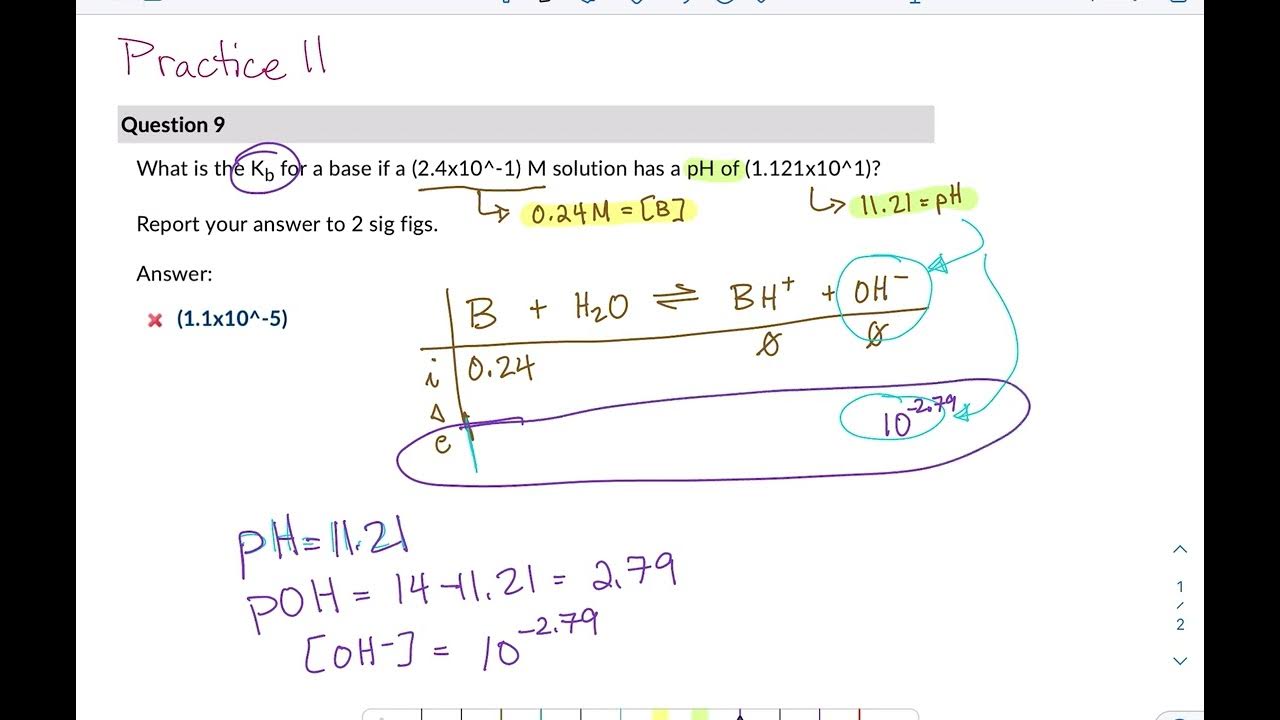 Practice 11
Question 9
What is the Kb for a base if a (2.4x10^-1) M solution has a pH of (1.121x10^1)?
0.24M = [B]
11.21 = pH
Report your answer to 2 sig figs.
Answer:
(1.1x10^-5)
B + H₂O ⇌ BH⁺ + OH⁻
i 0.24 0 0
Δ
e 10^-2.79
pH = 11.21
pOH = 14 - 11.21 = 2.79
[OH⁻] = 10^-2.79
1
/
2